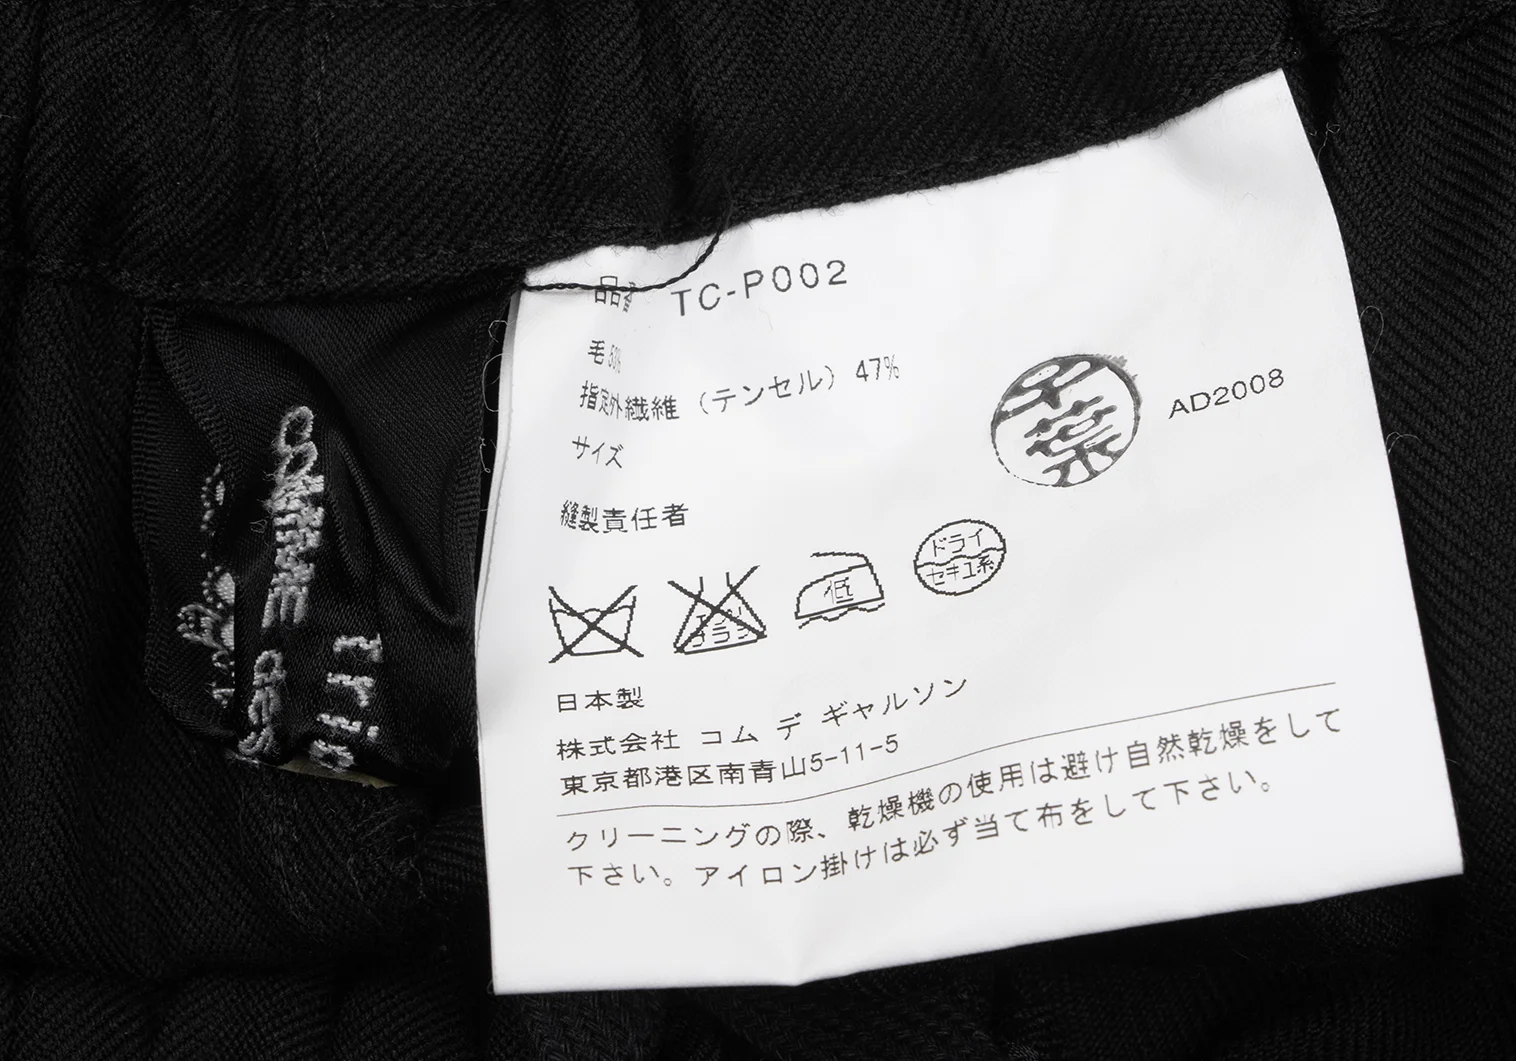 品番 TC-P002
毛 53%
指定外繊維（テンセル） 47%
サイズ
AD2008
縫製責任者
エンソ
サラシ
低
ドライ
セキユ系
日本製
株式会社 コム デ ギャルソン
東京都港区南青山5-11-5
クリーニングの際、乾燥機の使用は避け自然乾燥をして
下さい。アイロン掛けは必ず当て布をして下さい。
COMME des
tric